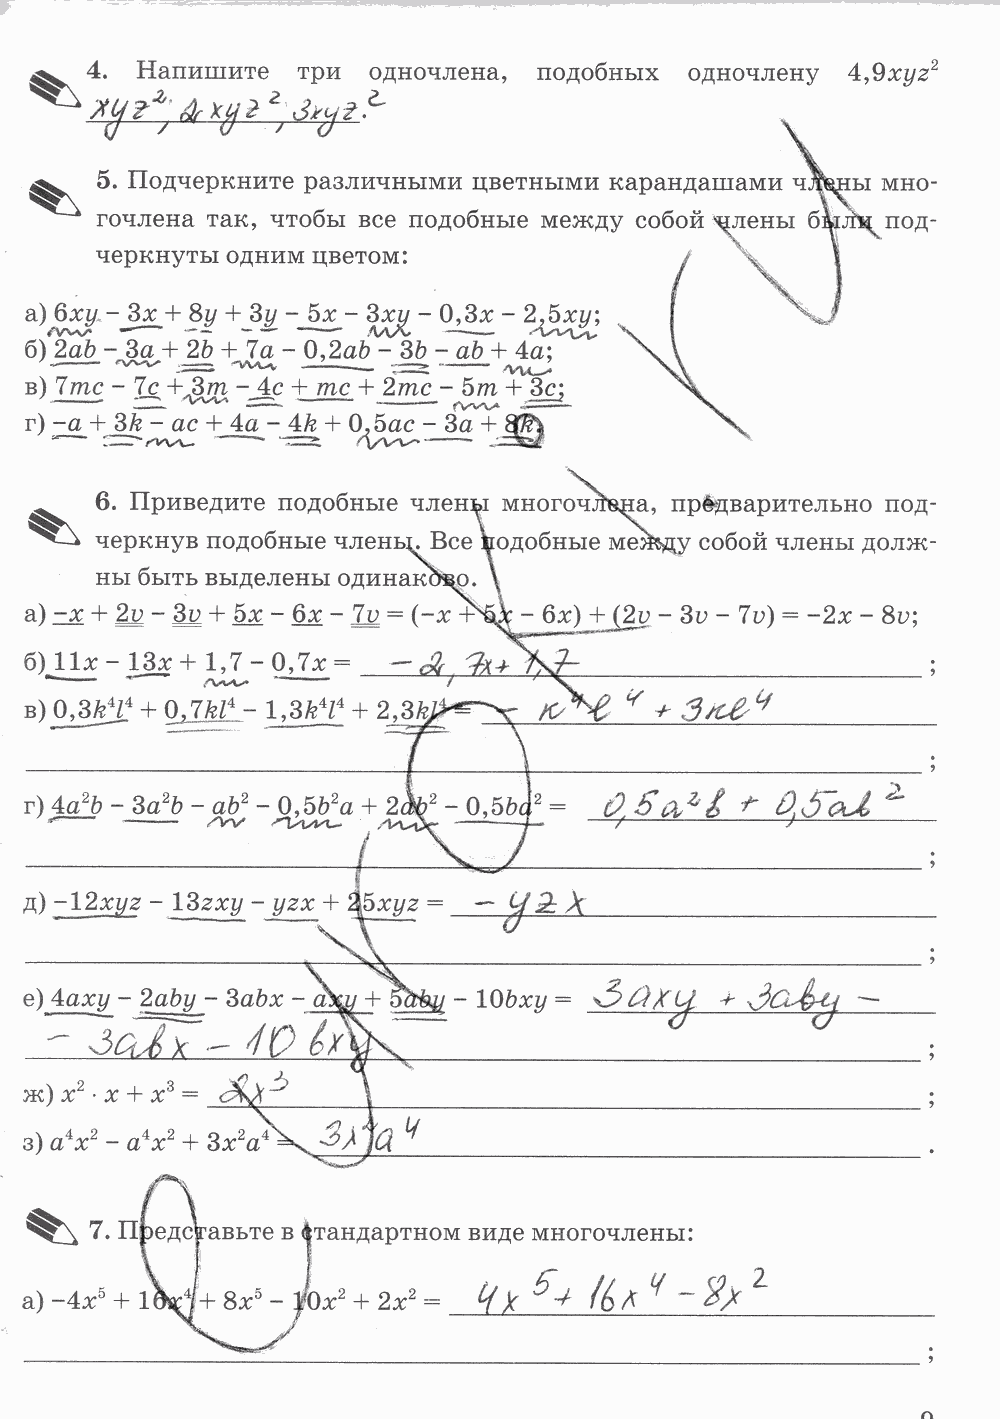 4. Напишите три одночлена, подобных одночлену 4,9xyz²
xyz²; 2xyz²; 3xyz².
5. Подчеркните различными цветными карандашами члены мно-
гочлена так, чтобы все подобные между собой члены были под-
черкнуты одним цветом:
а) 6xy – 3x + 8y + 3y – 5x – 3xy – 0,3x – 2,5xy;
б) 2ab – 3a + 2b + 7a – 0,2ab – 3b – ab + 4a;
в) 7mc – 7c + 3m – 4c + mc + 2mc – 5m + 3c;
г) –a + 3k – ac + 4a – 4k + 0,5ac – 3a + 8k.
6. Приведите подобные члены многочлена, предварительно под-
черкнув подобные члены. Все подобные между собой члены долж-
ны быть выделены одинаково.
а) –x + 2v – 3v + 5x – 6x – 7v = (–x + 5x – 6x) + (2v – 3v – 7v) = –2x – 8v;
б) 11x – 13x + 1,7 – 0,7x = –2,7x + 1,7 ;
в) 0,3k⁴l⁴ + 0,7kl⁴ – 1,3k⁴l⁴ + 2,3kl⁴ = – к⁴l⁴ + 3кl⁴
;
г) 4a²b – 3a²b – ab² – 0,5b²a + 2ab² – 0,5ba² = 0,5a²b + 0,5ab²
;
д) –12xyz – 13zxy – yzx + 25xyz = – yzx
;
е) 4axy – 2aby – 3abx – axy + 5aby – 10bxy = 3axy + 3aby –
– 3abx – 10bxy ;
ж) x² · x + x³ = 2x³ ;
з) a⁴x² – a⁴x² + 3x²a⁴ = 3x²a⁴ .
7. Представьте в стандартном виде многочлены:
а) –4x⁵ + 16x⁴ + 8x⁵ – 10x² + 2x² = 4x⁵ + 16x⁴ – 8x²
;